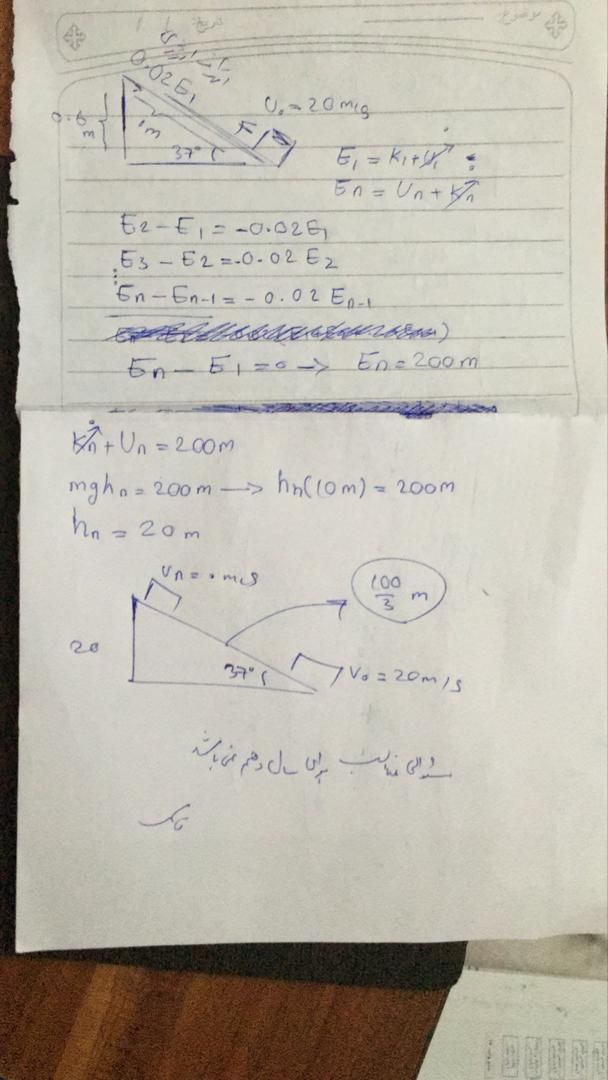 موضوع:
تاریخ: / /
0.02E₁
V₀ = 20 m/s
0.6 m
1m
F
37°
E₁ = K₁ + U₁
En = Un + Kn
E2 - E₁ = -0.02E₁
E3 - E2 = -0.02 E2
⋮
En - En-1 = - 0.02 En-1
En - E₁ = 0 → En = 200m
Kn + Un = 200m
mghn = 200m → hn(10m) = 200m
hn = 20m
Vn = 0 m/s
100/3 m
20
37°
V₀ = 20 m/s
سوال مناسب برای سال دهم نمی باشد